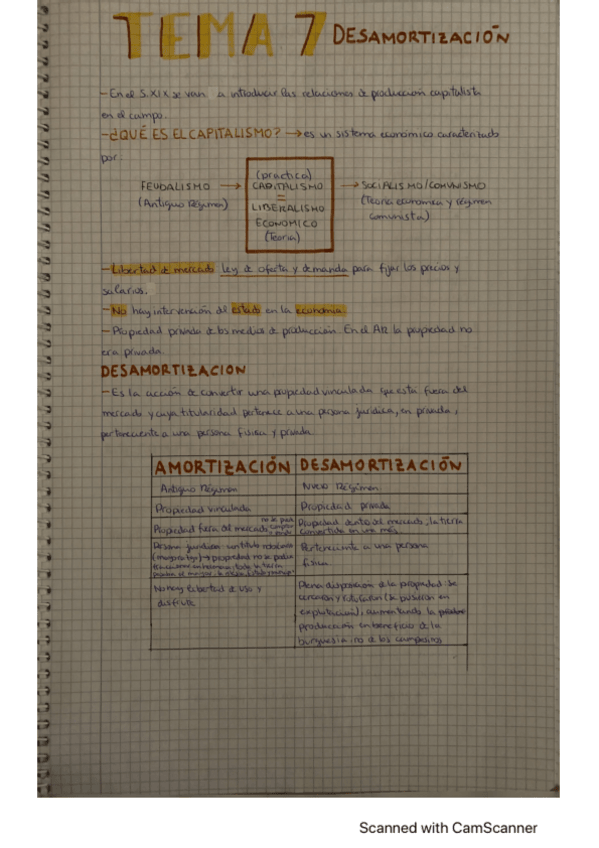 TEMA 7 DESAMORTIZACIÓN
- En el S.XIX se van a introducir las relaciones de producción capitalista
en el campo.
- ¿QUÉ ES EL CAPITALISMO? → es un sistema económico caracterizado
por:
FEUDALISMO → (práctica) CAPITALISMO → SOCIALISMO/COMUNISMO
(Antiguo Régimen) = LIBERALISMO (Teoría económica y régimen
ECONOMICO comunista)
(Teoría)
- Libertad de mercado ley de oferta y demanda para fijar los precios y
salarios.
- No hay intervención del estado en la economía.
- Propiedad privada de los medios de producción. En el AR la propiedad no
era privada.
DESAMORTIZACION
- Es la acción de convertir una propiedad vinculada que esta fuera del
mercado y cuya titularidad pertenece a una persona jurídica, en privada,
perteneciente a una persona física y privada.
AMORTIZACIÓN DESAMORTIZACIÓN
Antiguo Régimen Nuevo Régimen
Propiedad vinculada Propiedad privada
Propiedad fuera del mercado no se puede comprar Propiedad dentro del mercado, la tierra
convertida en una más
Persona jurídica: un título nobiliario Pertenciente a una persona
(mayorazgo) → propiedad no se podía física
No hay libertad de uso y Plena disposición de la propiedad: se
disfrute
explotación), aumentando la
producción en beneficio de la
burguesía, no de los campesinos
Scanned with CamScanner